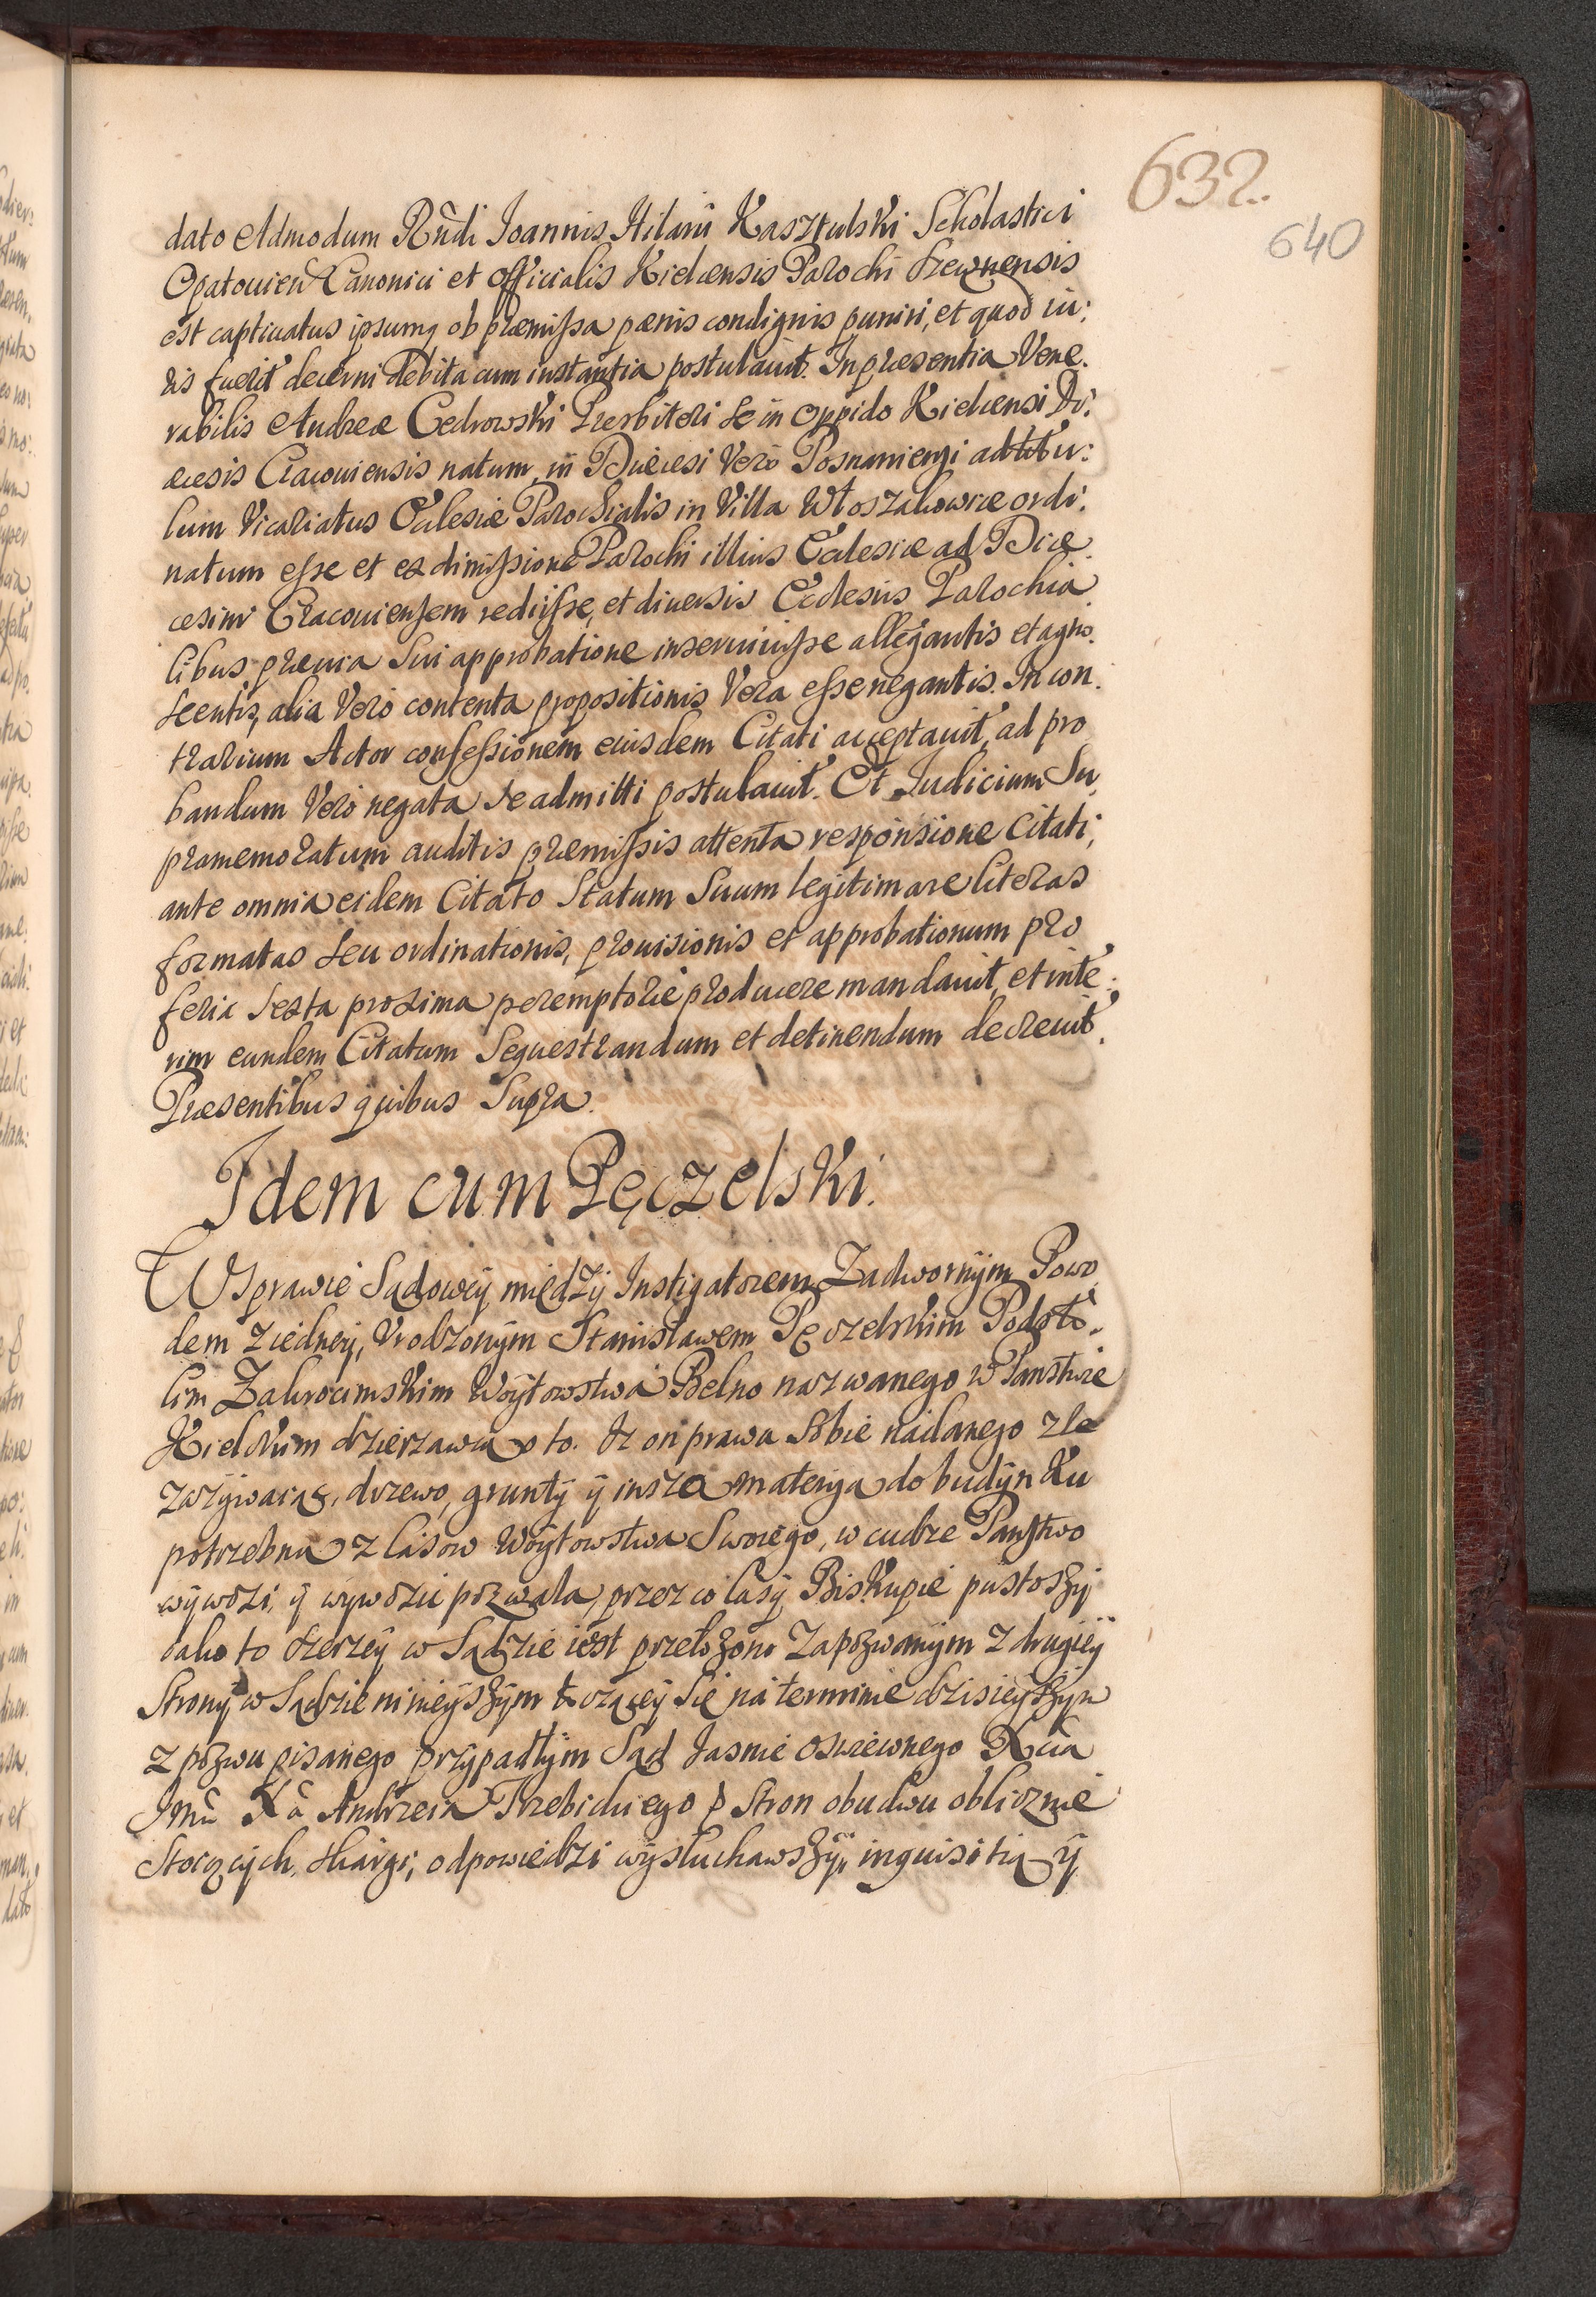 632.
640
dato Admodum Rñdi Joannis Hilarii Kasztulski Scholastici
Opatouien Canonici et Officialis Kielcensis Parochi
est captiuatus ipsumq ob præmissa pœnis condignis puniri, et quod iu:
ris fuerit decerni debita cum instantia postulauit. In præsentia Vene.
rabilis Andreæ Cedrowski Presbiteri se in oppido Kielcensi Di:
æcesis Cracouiensis natum, in Diæcesi Vero Posnaniensi ad titu:
lum Vicariatus Ecclesiæ Parochialis in Villa Włoszakowice ordi:
natum esse et ex dimissione Parochi illius Ecclesiæ ad Diæ
cesim Cracouiensem rediisse, et diuersis Ecclesiis Parochia
libus, præuia Sui approbatione inseruiuisse allegantis et agno.
scentis, alia Vero contenta propositionis Vera esse negantis. In con.
trarium Actor confessionem eiusdem Citati acceptauit, ad pro
bandum Vero negata se admitti postulauit. Et Judicium Su,
pramemoratum auditis præmissis attenta responsione Citati,
ante omnia eidem Citato Statum Suum legitimare literas
formatas seu ordinationis, prouisionis et approbationum pro
feria sexta proxima peremptorie producere mandauit, et inte:
rim eundem Citatum Sequestrandum et detinendum decreuit.
Præsentibus quibus Supra.
Idem cum Pęczelski.
W Sprawie Sądowey między Instigatorem Zadwornym Powo
dem z iedney, Vrodzonym Stanisławem Pęczelskim Podsto.
lim Zakrocimskim Woytowstwa Belno nazwanego w Panstwie
Kieleckim dzierzawcą o to. Iz on prawa Sobie nadanego zle
zazywaiąc, drzewo, grunty y insza materya do budynku
potrzebna z lasow Woytowstwa Swoiego, w cudze Panstwo
wywozi, y wywozic pozwala, przez co lasy Biskupie pustoszy
iako to szerzey w Sądzie iest przełozono Zapozwanym z drugiey
Strony w Sądzie ninieyszym toczącey Się na terminie dzisieyszym
z pozwu pisanego przypadłym Sąd Jasnie Oswieconego Xcia
Jmci X a Andrzeia Trzebickiego Stron obudwu oblicznie
Stoiących, Skargi, odpowiedzi wysłuchawszy, inquisitią y